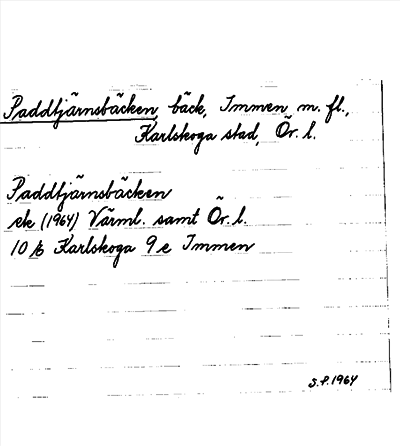 Paddtjärnsbäcken, bäck, Immen m. fl.,
Karlskoga stad, Ör. l.
Paddtjärnsbäcken
ek (1964) Värml. samt Ör. l.
10/6 Karlskoga 9 e Immen
S.P. 1964